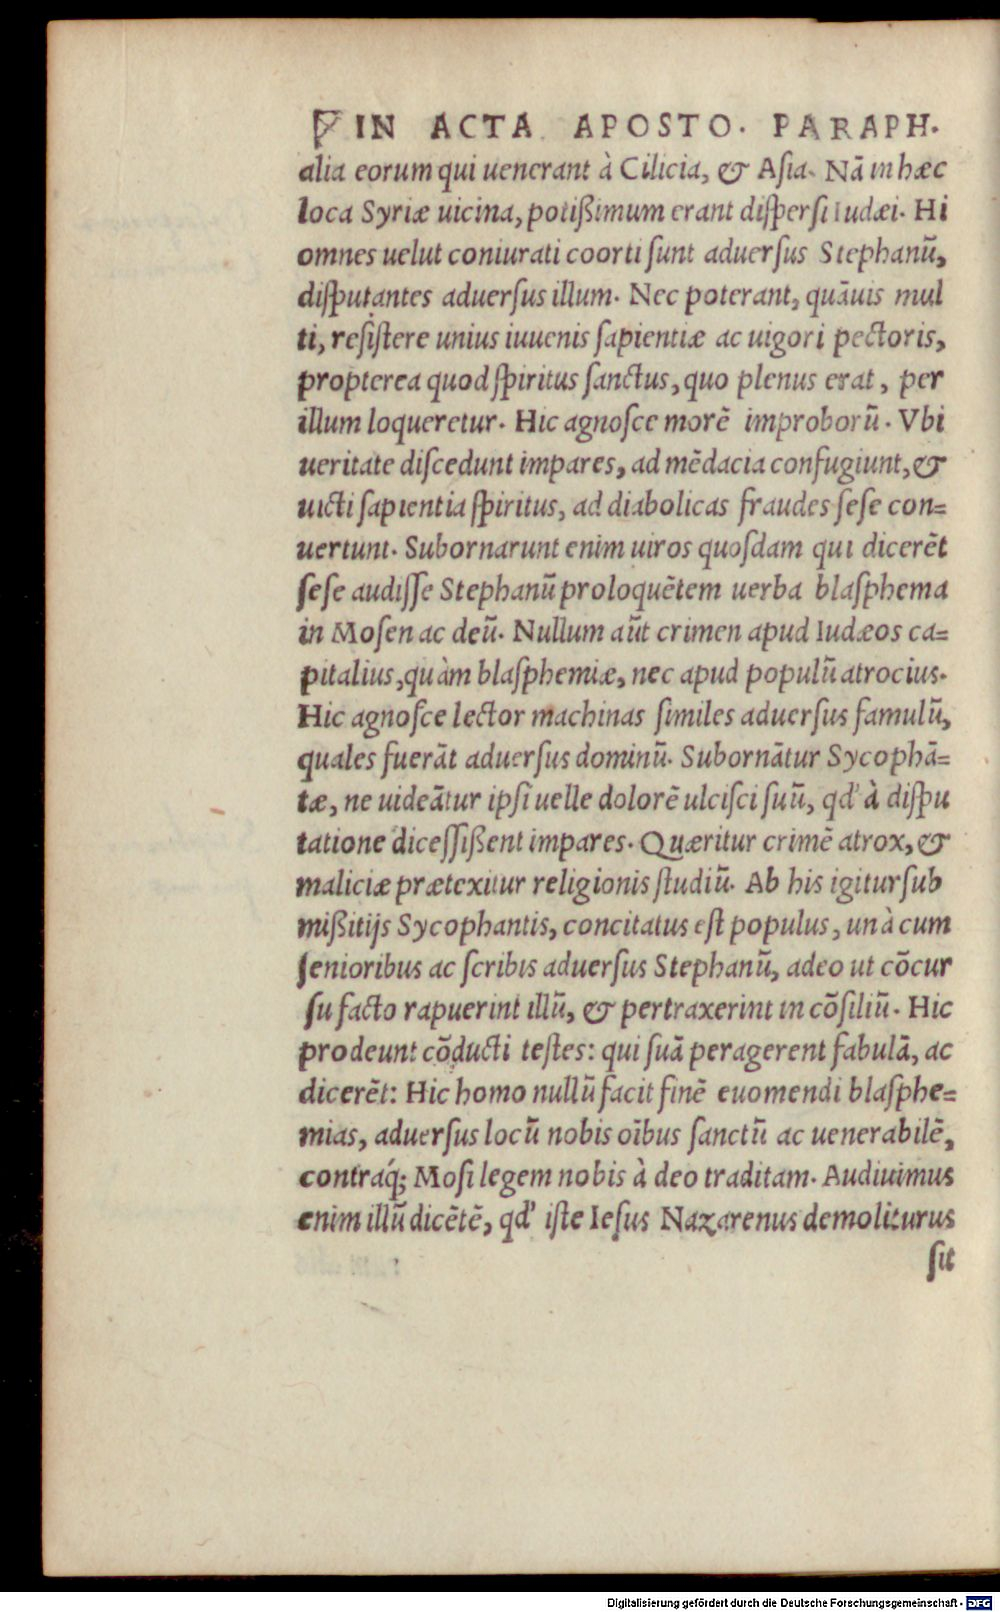 IN ACTA APOSTO. PARAPH.
alia eorum qui uenerant à Cilicia, & Asia. Nā in hæc
loca Syriæ uicina, potißimum erant diſperſi Iudæi. Hi
omnes uelut coniurati coorti ſunt aduerſus Stephanū,
diſputantes aduerſus illum. Nec poterant, quāuis mul
ti, reſiſtere unius iuuenis ſapientiæ ac uigori pectoris,
propterea quod ſpiritus ſanctus, quo plenus erat, per
illum loqueretur. Hic agnoſce morē improborū. Vbi
ueritate diſcedunt impares, ad mēdacia confugiunt, &
uicti ſapientia ſpiritus, ad diabolicas fraudes ſeſe con=
uertunt. Subornarunt enim uiros quoſdam qui dicerēt
ſeſe audiſſe Stephanū proloquētem uerba blaſphema
in Moſen ac deū. Nullum aūt crimen apud Iudæos ca=
pitalius, quàm blaſphemiæ, nec apud populū atrocius.
Hic agnoſce lector machinas ſimiles aduerſus famulū,
quales fuerāt aduerſus dominū. Subornātur Sycophā=
tæ, ne uideātur ipſi uelle dolorē ulciſci ſuū, qd' à diſpu
tatione diceſſißent impares. Quæritur crimē atrox, &
maliciæ prætexitur religionis ſtudiū. Ab his igitur ſub
mißitijs Sycophantis, concitatus eſt populus, unà cum
ſenioribus ac ſcribis aduerſus Stephanū, adeo ut cōcur
ſu facto rapuerint illū, & pertraxerint in cōſiliū. Hic
prodeunt cōducti teſtes: qui ſuā peragerent fabulā, ac
dicerēt: Hic homo nullū facit finē euomendi blaſphe=
mias, aduerſus locū nobis oībus ſanctū ac uenerabilē,
contraq́; Moſi legem nobis à deo traditam. Audiuimus
enim illū dicētē, qd' iſte Ieſus Nazarenus demoliturus
ſit
Digitalisierung gefördert durch die Deutsche Forschungsgemeinschaft - DFG